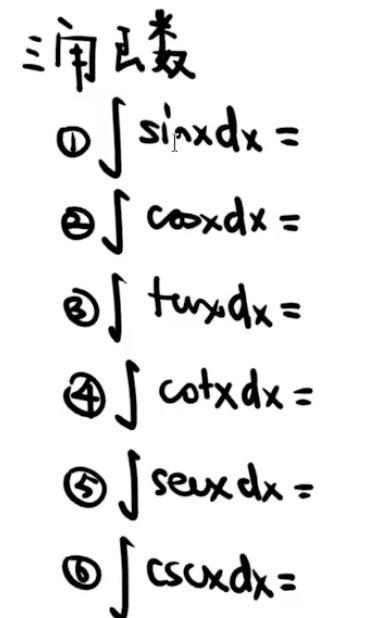 三角函数
① ∫ sinxdx =
② ∫ cosxdx =
③ ∫ tanxdx =
④ ∫ cotxdx =
⑤ ∫ secxdx =
⑥ ∫ cscxdx =